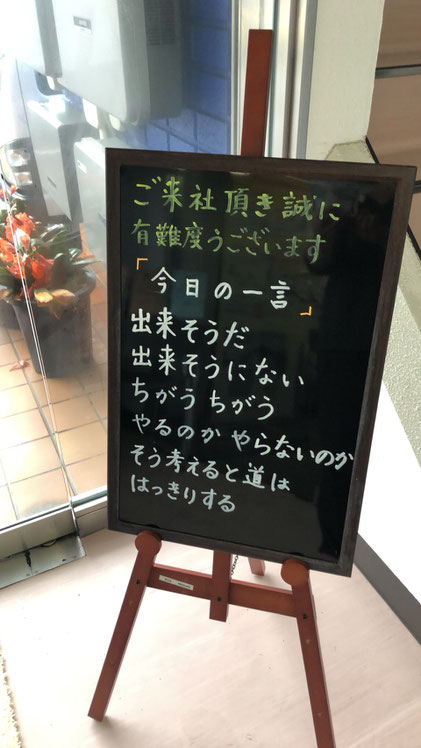 ご来社頂き誠に
有難度うございます
「今日の一言」
出来そうだ
出来そうにない
ちがう ちがう
やるのか やらないのか
そう考えると道は
はっきりする